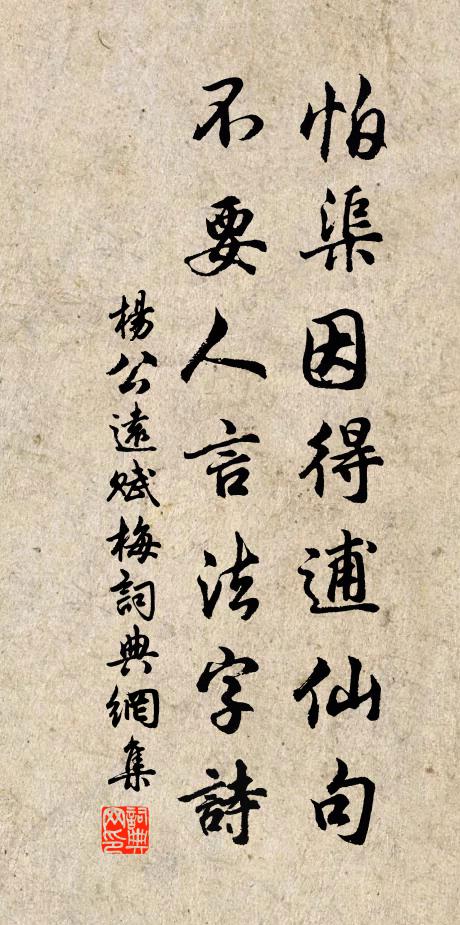 怕渠因得逋仙句
不要人言法字詩
楊公遠賦梅詞典網集
詞典網印